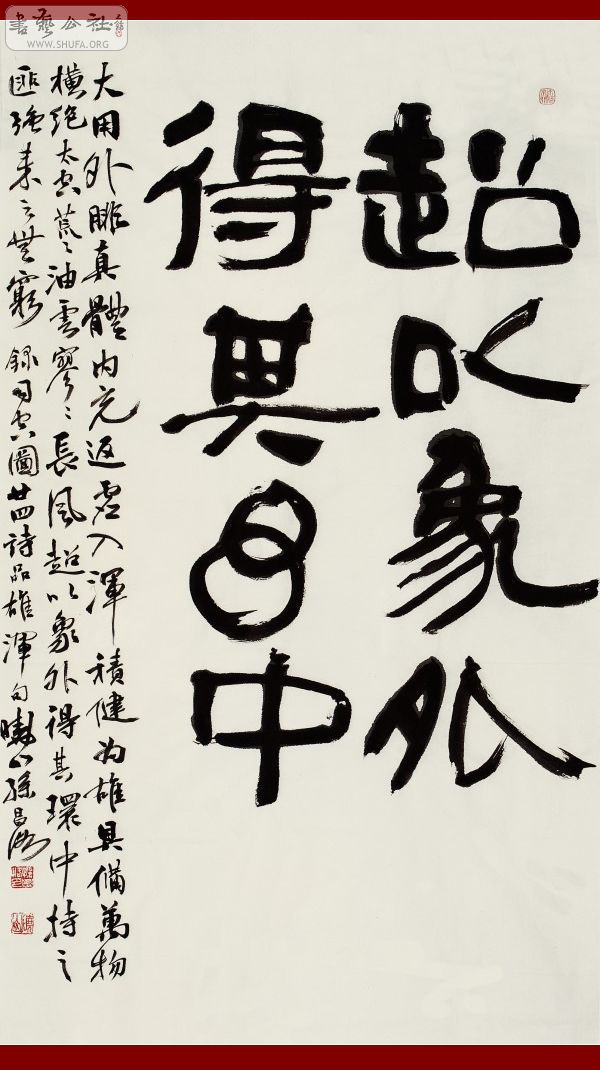 書藝公社
WWW.SHUFA.ORG
超以象外
得其環中
大用外腓真體内充返虛入渾積健为雄具備萬物
橫绝太空荒〻油雲寥〻長風超以象外得其環中持之
匪强来之無窮 録司空圖廿四詩品雄渾句 孫昌